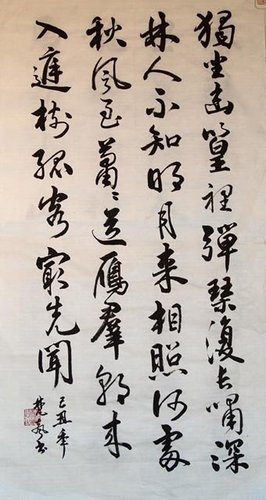 獨坐幽篁裡彈琴復長嘯深
林人不知明月来相照何處
秋風至蕭〻送鴈羣朝来
入庭樹孤客最先聞
己丑年